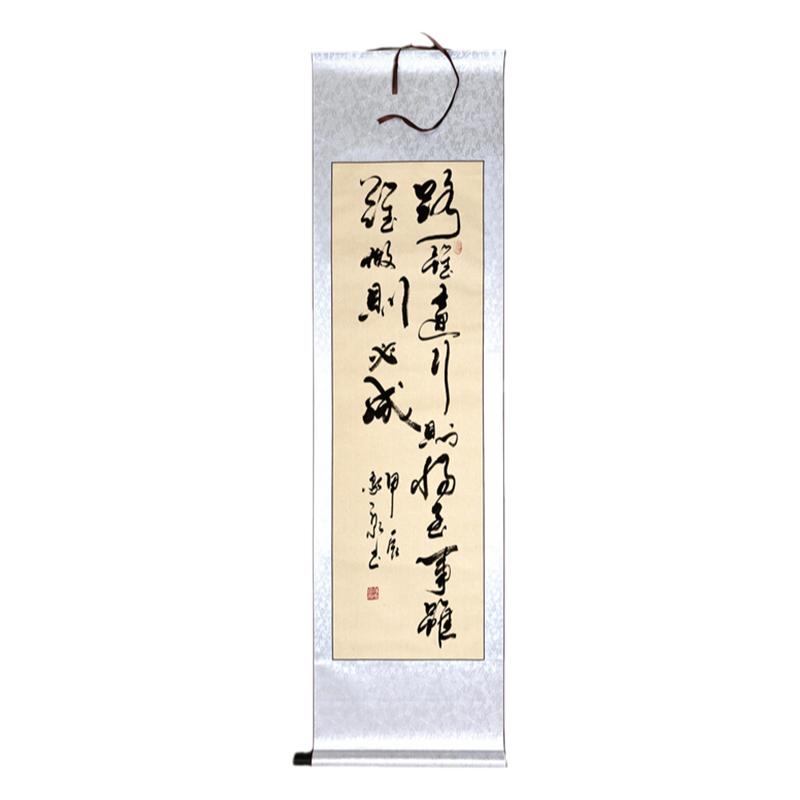 路雖遠行則將至事雖
難做則必成
甲辰
書